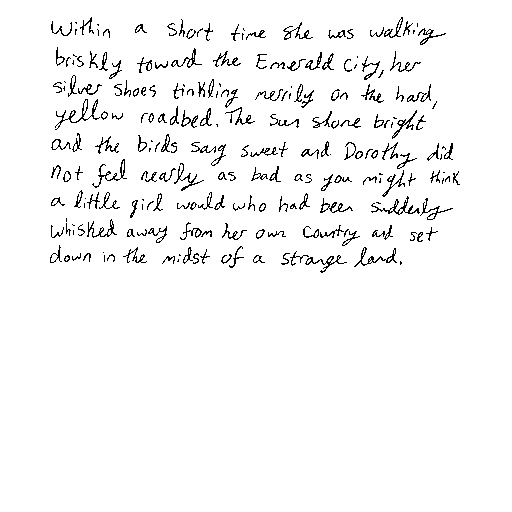 Within a short time she was walking
briskly toward the Emerald City, her
silver shoes tinkling merrily on the hard,
yellow roadbed. The sun shone bright
and the birds sang sweet and Dorothy did
not feel nearly as bad as you might think
a little girl would who had been suddenly
whisked away from her own country and set
down in the midst of a strange land.